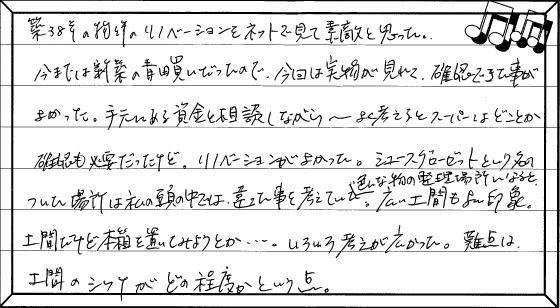 築38年の物件のリノベーションをネットで見て素敵と思った。
今までは新築の青田買いだったので、今回は実物が見れて、確認できた事が
よかった。手元にある資金と相談しながら〜よく考えるとスーパーはどことか
確認も必要だったけど。リノベーションがよかった。シューズクローゼットという名の
ついた場所は私の頭の中では、違った事を考えていた。広い土間もよい印象。
色んな物の整理場所になると
土間だけど本箱を置いてみようとか・・・。いろいろ考えが広がった。難点は、
土間のシツケがどの程度かという点。